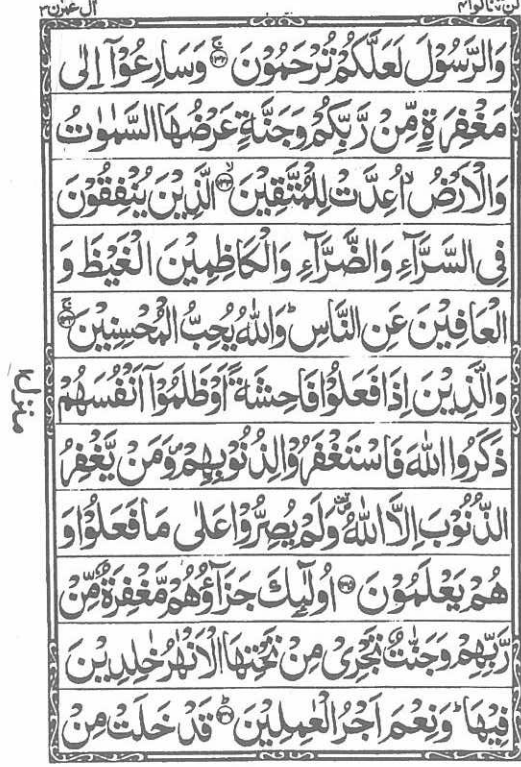 لن تنالوا ۴
اٰل عمرٰن ۳
وَالرَّسُوْلَ لَعَلَّكُمْ تُرْحَمُوْنَ ۚ‏﴿۱۳۲﴾ وَسَارِعُوْۤا اِلٰى
مَغْفِرَةٍ مِّنْ رَّبِّكُمْ وَجَنَّةٍ عَرْضُهَا السَّمٰوٰتُ
وَالْاَرْضُ ۙ اُعِدَّتْ لِلْمُتَّقِيْنَ ۙ‏﴿۱۳۳﴾ الَّذِيْنَ يُنْفِقُوْنَ
فِى السَّرَّآءِ وَالضَّرَّآءِ وَالْكَاظِمِيْنَ الْغَيْظَ وَ
الْعَافِيْنَ عَنِ النَّاسِ ؕ وَاللّٰهُ يُحِبُّ الْمُحْسِنِيْنَ ۚ‏﴿۱۳۴﴾
وَالَّذِيْنَ اِذَا فَعَلُوْا فَاحِشَةً اَوْ ظَلَمُوْۤا اَنْفُسَهُمْ
ذَكَرُوا اللّٰهَ فَاسْتَغْفَرُوْا لِذُنُوْبِهِمْ ۪ وَمَنْ يَّغْفِرُ
الذُّنُوْبَ اِلَّا اللّٰهُ ۪۫ وَلَمْ يُصِرُّوْا عَلٰى مَا فَعَلُوْا وَ
هُمْ يَعْلَمُوْنَ ﴿۱۳۵﴾ اُولٰٓئِكَ جَزَآؤُهُمْ مَّغْفِرَةٌ مِّنْ
رَّبِّهِمْ وَجَنّٰتٌ تَجْرِىْ مِنْ تَحْتِهَا الْاَنْهٰرُ خٰلِدِيْنَ
فِيْهَا ؕ وَنِعْمَ اَجْرُ الْعٰمِلِيْنَ ؕ‏﴿۱۳۶﴾ قَدْ خَلَتْ مِنْ
منزل ۱